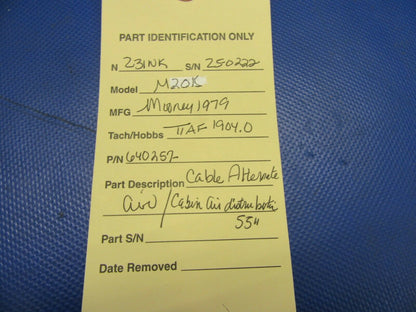 PART IDENTIFICATION ONLY
N 231NK S/N 250222
Model M20K
MFG Mooney 1979
Tach/Hobbs TTAF 1904.0
P/N 640257
Part Description Cable Alternate
air / Cabin air
55"
Part S/N
Date Removed